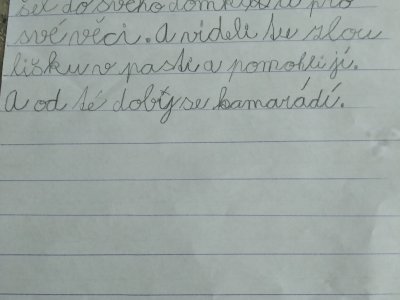 šel do svého domku si pro
své věci. A viděli tu zlou
lišku v pasti a pomohli jí.
A od té doby se kamarádí.